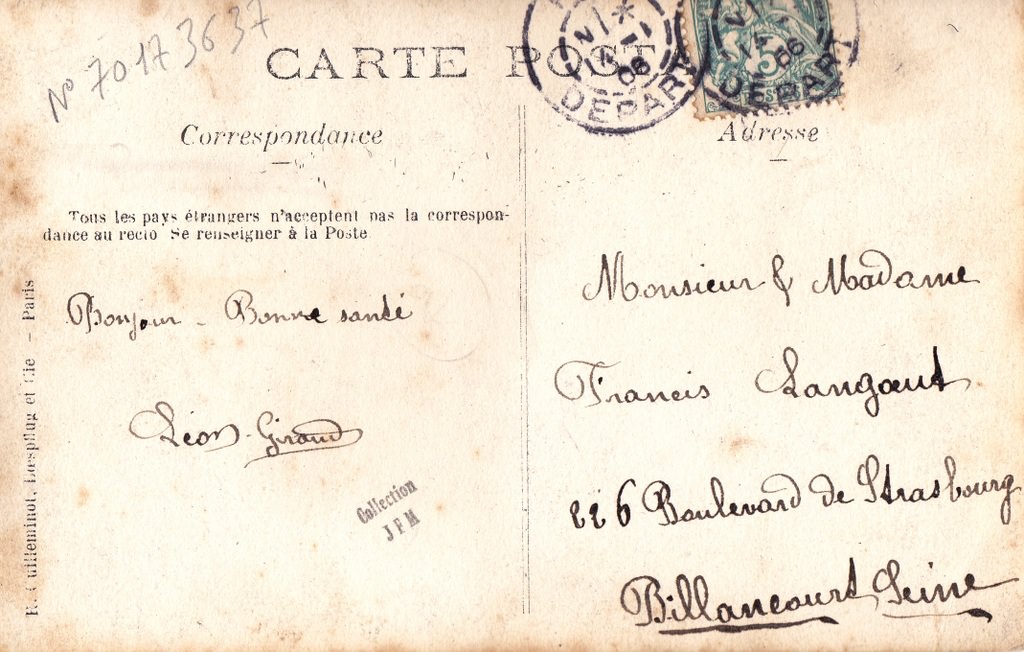 No 70173637
CARTE POSTA
DEPART
06
5
DEPART
06
Correspondance
Adresse
Tous les pays étrangers n'acceptent pas la correspon-
dance au recto Se renseigner à la Poste
Bonjour - Bonne santé
Léon Giraud
Collection
J F M
R. Guilleminot, Bœspflug et Cie – Paris
Monsieur & Madame
Francis Langaut
226 Boulevard de Strasbourg
Billancourt Seine